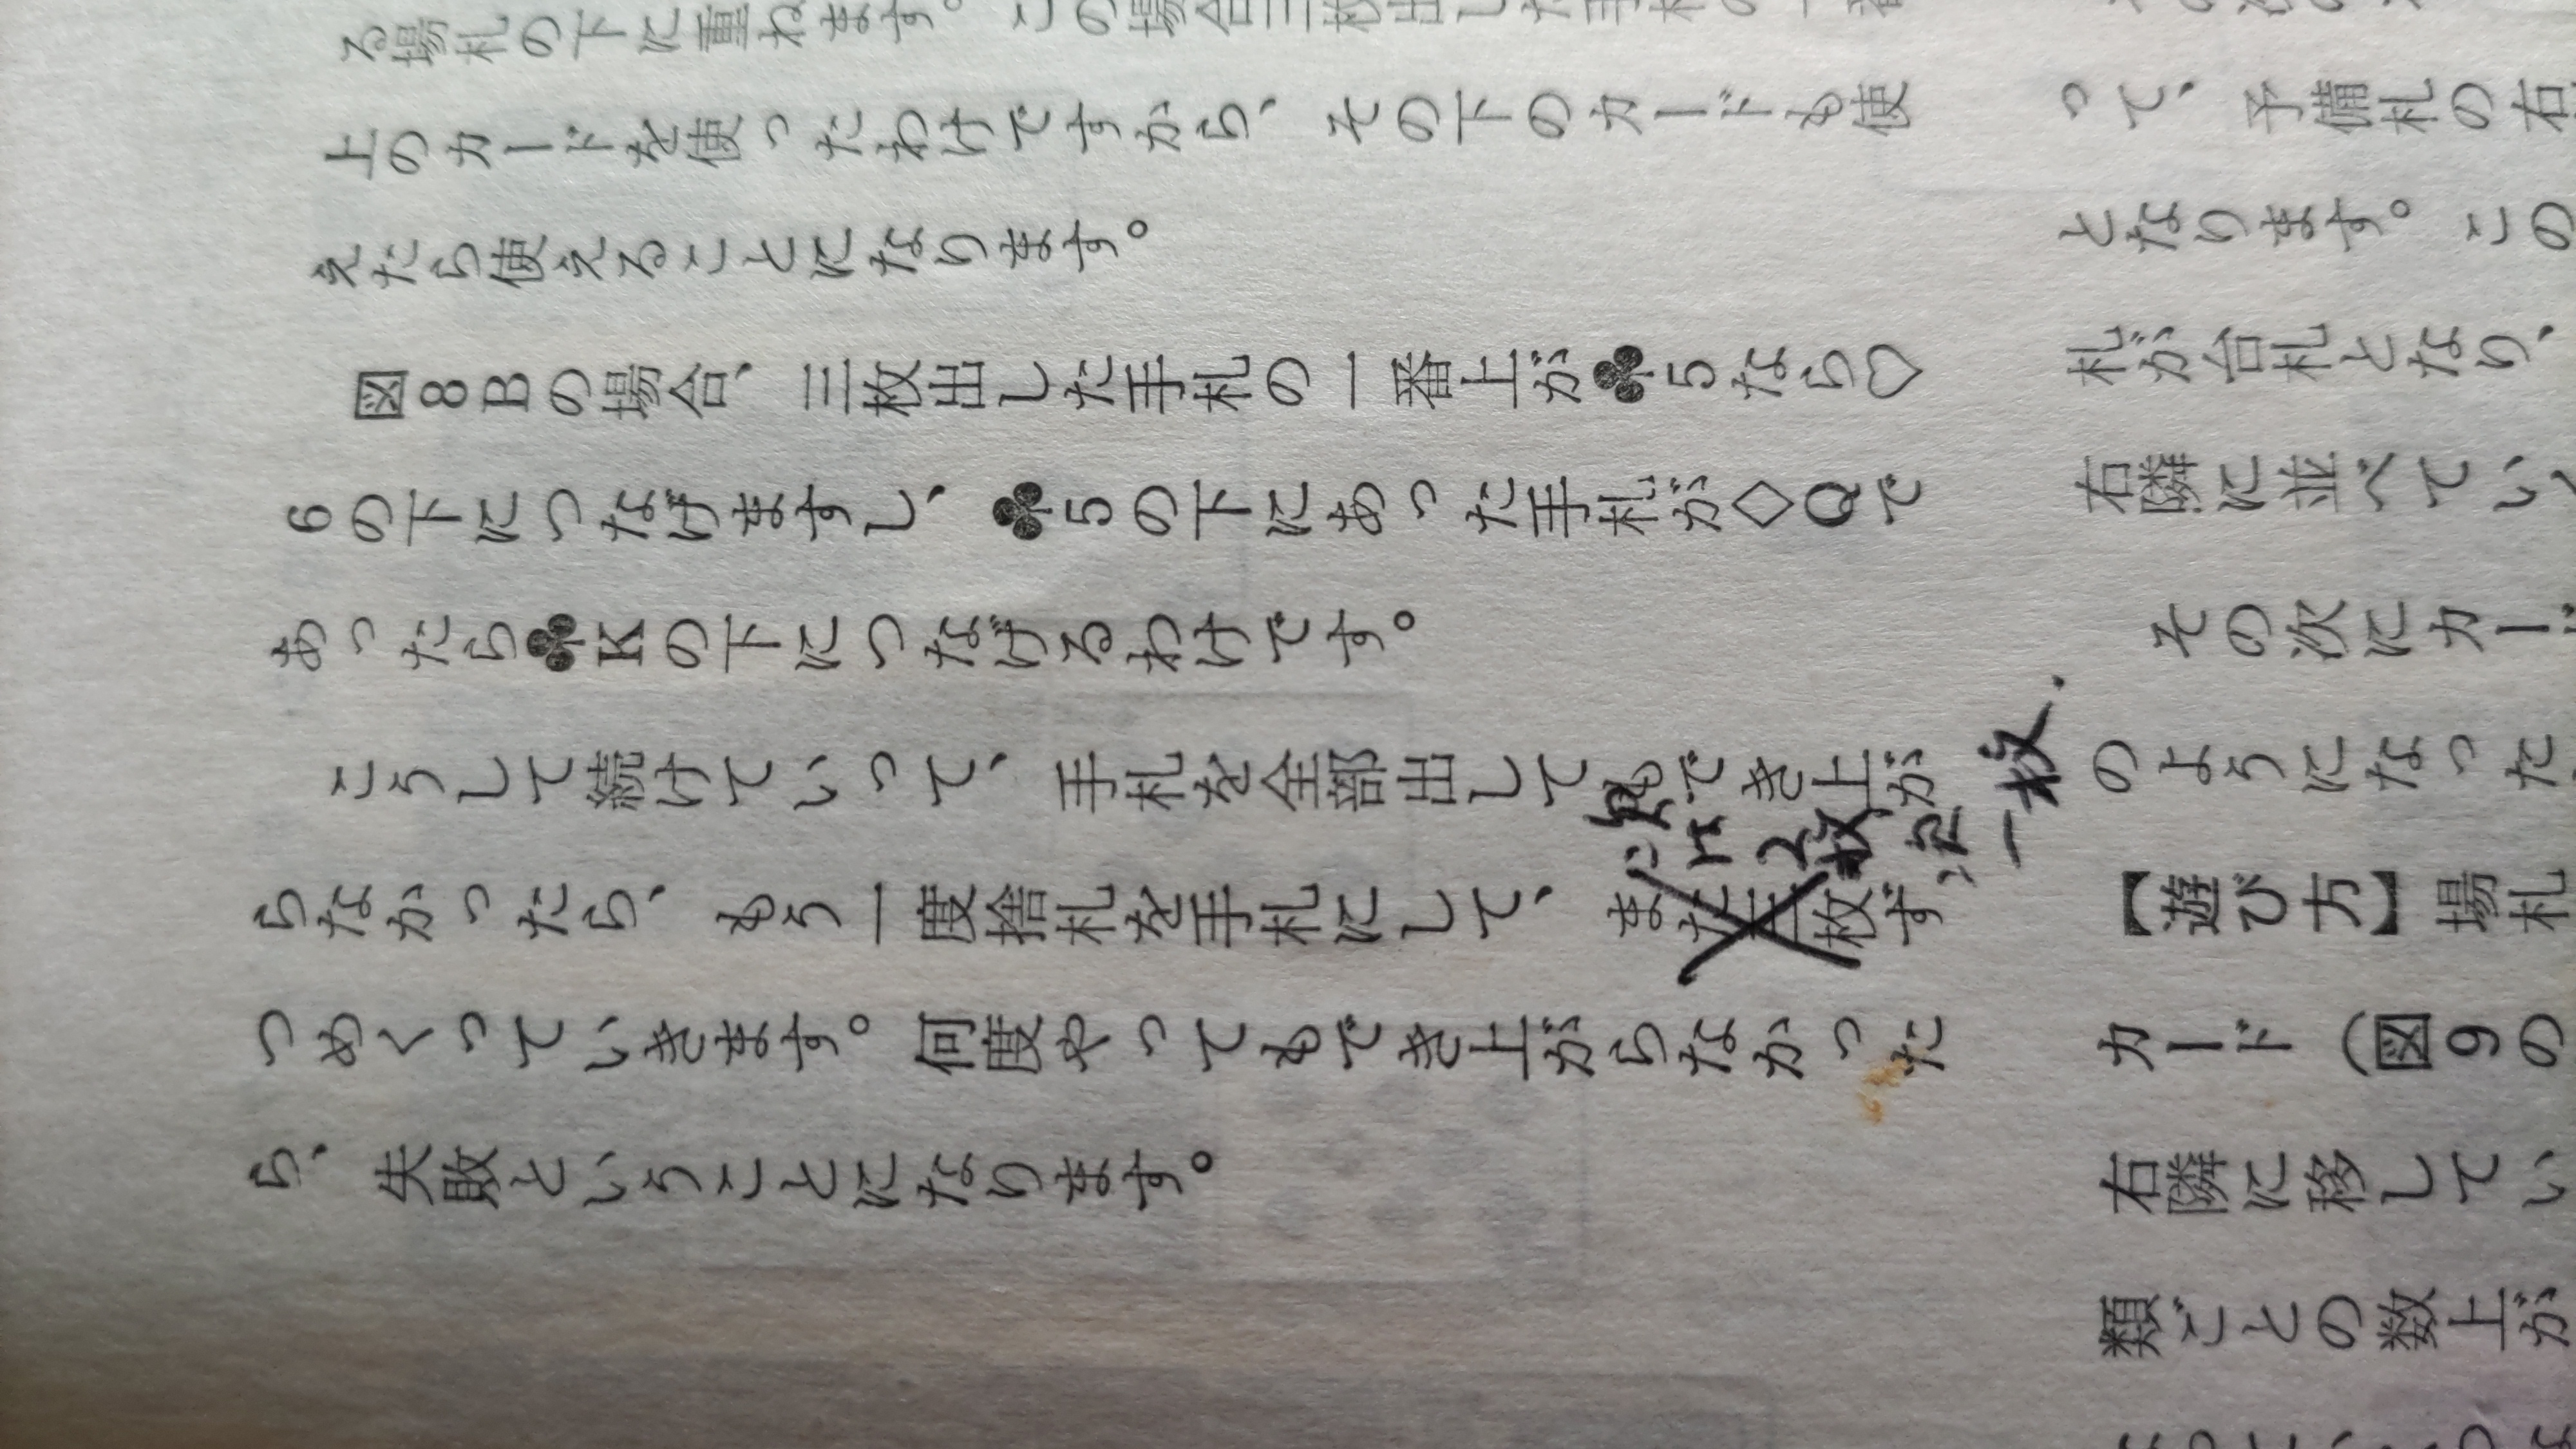 る場札の下に重ねます。この場合三枚出した手札の一番
上のカードを使ったわけですから、その下のカードも使
えたら使えることになります。
図8Bの場合、三枚出した手札の一番上が♣5なら♡
6の下につなげますし、♣5の下にあった手札が◇Qで
あったら♣Kの下につなげるわけです。
こうして続けていって、手札を全部出してもでき上が
らなかったら、もう一度捨札を手札にして、また三枚ず
つめくっていきます。何度やってもでき上がらなかった
ら、失敗ということになります。
2枚
一枚.
って、予備札の右
となります。この
札が台札となり、
右隣に並べてい
その次にカード
のようになった
【遊び方】場札
カード(図9の
右隣に移してい
類ごとの数上が